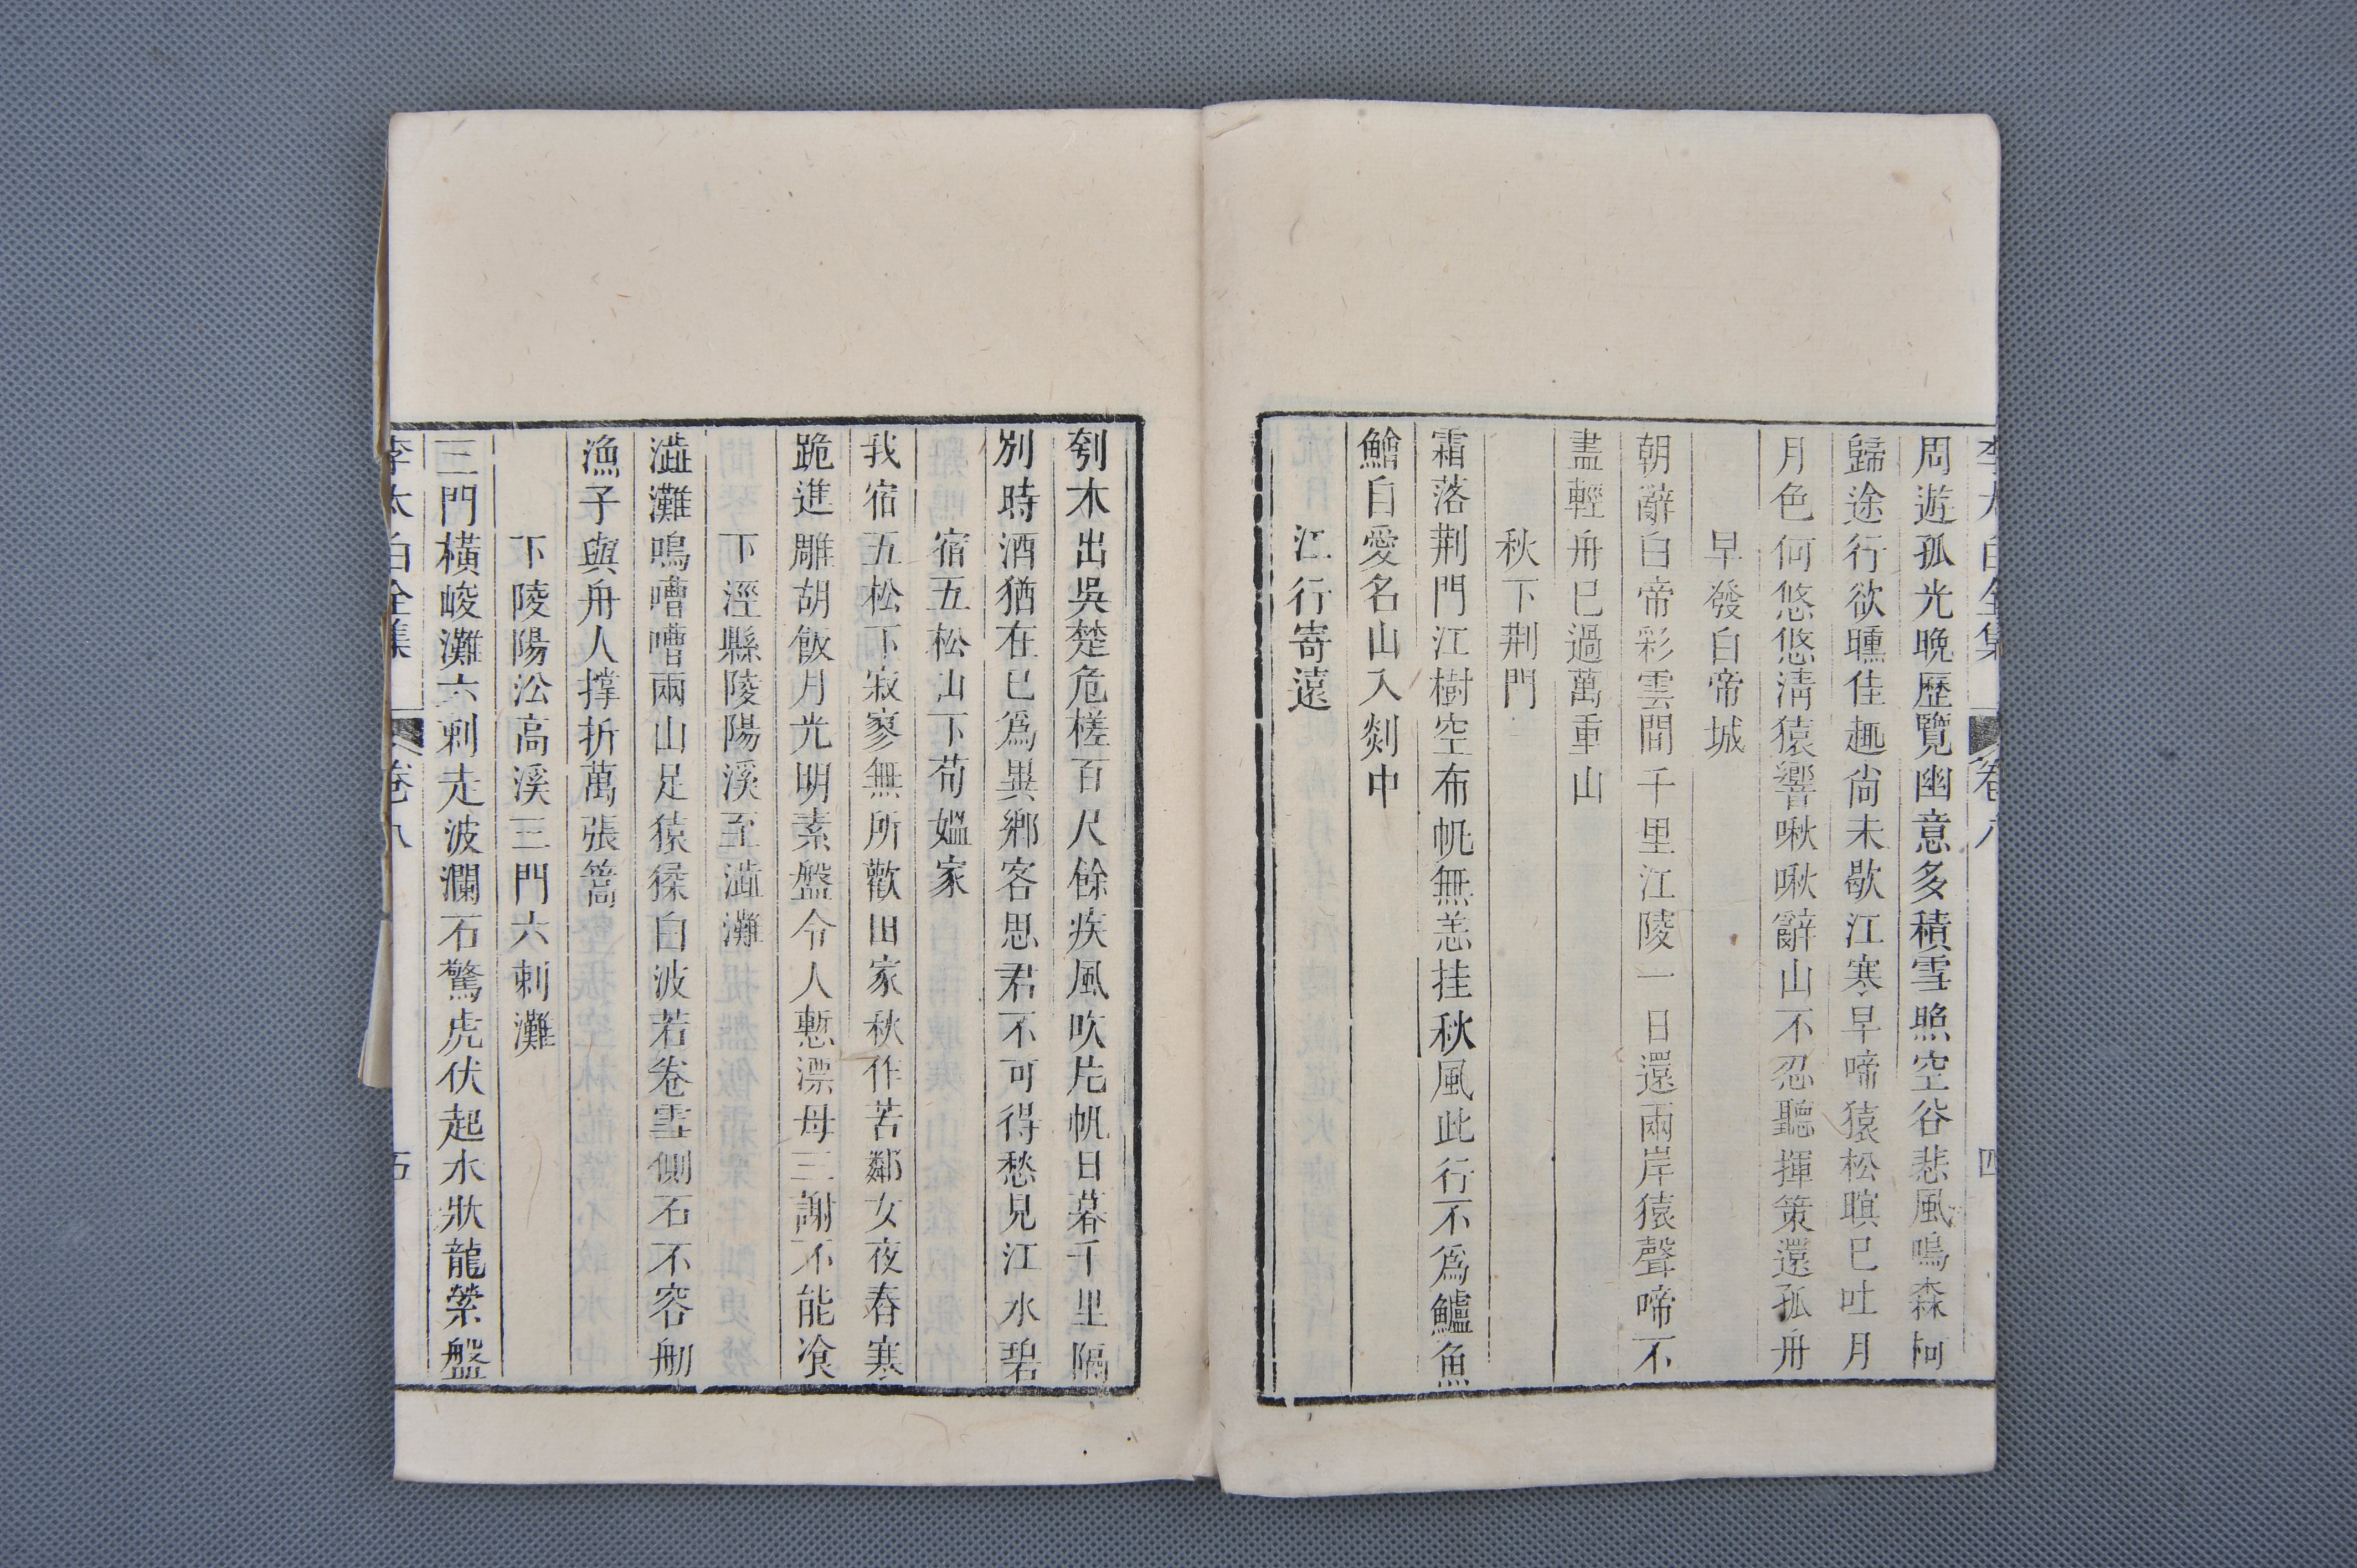 李太白全集 卷八 四
周遊孤光晚歷覽幽意多積雪照空谷悲風鳴森柯
歸途行欲曛佳趣尚未歇江寒早啼猿松暝已吐月
月色何悠悠清猿響啾啾辭山不忍聽揮策還孤舟
早發白帝城
朝辭白帝彩雲間千里江陵一日還兩岸猿聲啼不
盡輕舟已過萬重山
秋下荆門
霜落荆門江樹空布帆無恙挂秋風此行不爲鱸魚
鱠自愛名山入剡中
江行寄遠
刳木出吳楚危槎百尺餘疾風吹片帆日暮千里隔
別時酒猶在已爲異鄉客思君不可得愁見江水碧
宿五松山下荀媼家
我宿五松下寂寥無所歡田家秋作苦鄰女夜舂寒
跪進雕胡飯月光明素盤令人慙漂母三謝不能飡
下涇縣陵陽溪至澁灘
澁灘鳴嘈嘈兩山足猿猱白波若卷雪側石不容舠
漁子與舟人撐折萬張篙
下陵陽沿高溪三門六刺灘
三門橫峻灘六刺走波瀾石驚虎伏起水狀龍縈盤
李太白全集 卷八 五